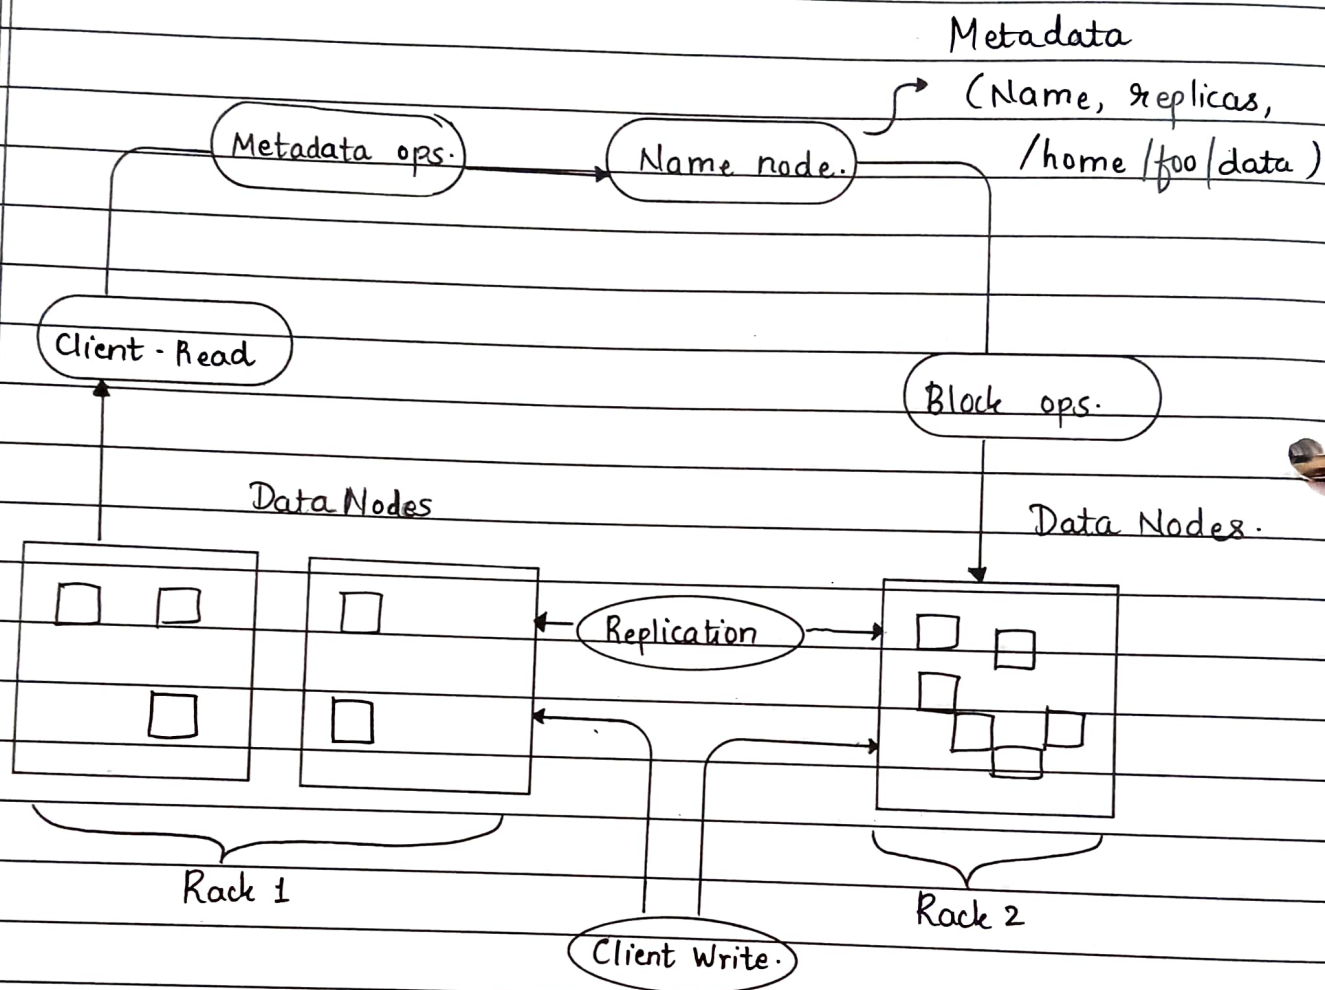 Metadata
(Name, replicas,
/home/foo/data)
Metadata ops.
Name node.
Client - Read
Block ops.
Data Nodes
Data Nodes.
Replication
Rack 1
Rack 2
Client Write.